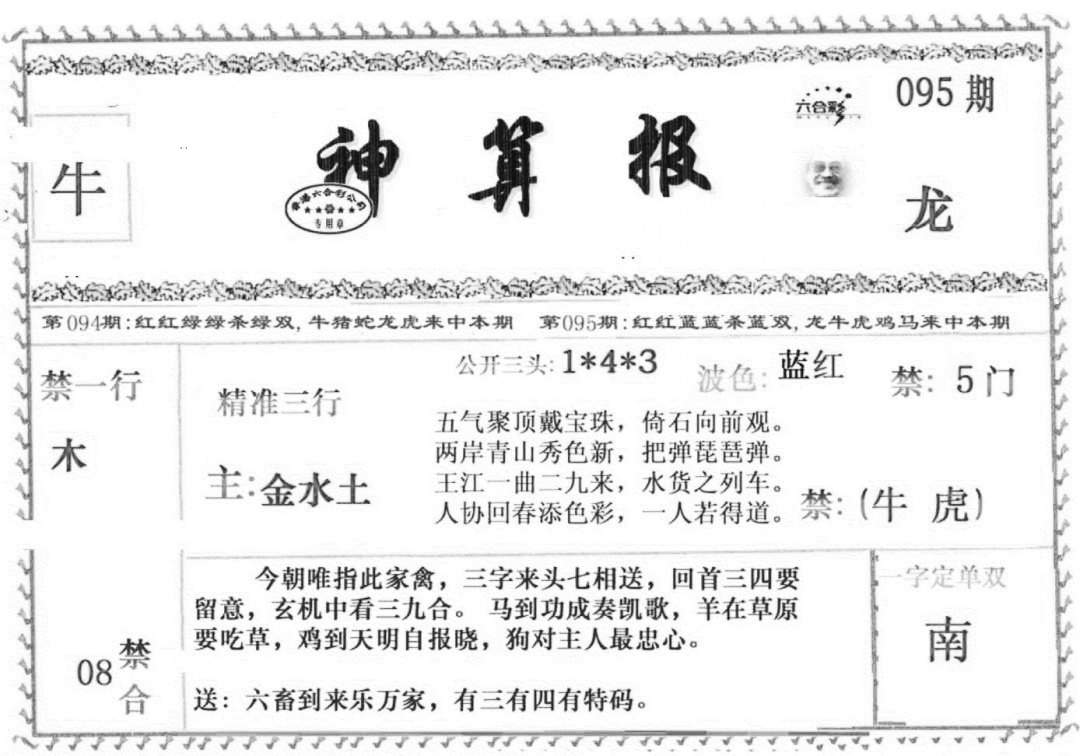 牛
神算报
香港六合彩公司
专用章
六合彩
095期
龙
第094期:红红绿绿杀绿双,牛猪蛇龙虎来中本期
第095期:红红蓝蓝杀蓝双,龙牛虎鸡马来中本期
禁一行
木
精准三行
主:金水土
公开三头:1*4*3
波色:蓝红
禁:5门
五气聚顶戴宝珠，倚石向前观。
两岸青山秀色新，把弹琵琶弹。
王江一曲二九来，水货之列车。
人协回春添色彩，一人若得道。
禁:(牛 虎)
08
禁
合
今朝唯指此家禽，三字来头七相送，回首三四要
留意，玄机中看三九合。 马到功成奏凯歌，羊在草原
要吃草，鸡到天明自报晓，狗对主人最忠心。
送：六畜到来乐万家，有三有四有特码。
一字定单双
南